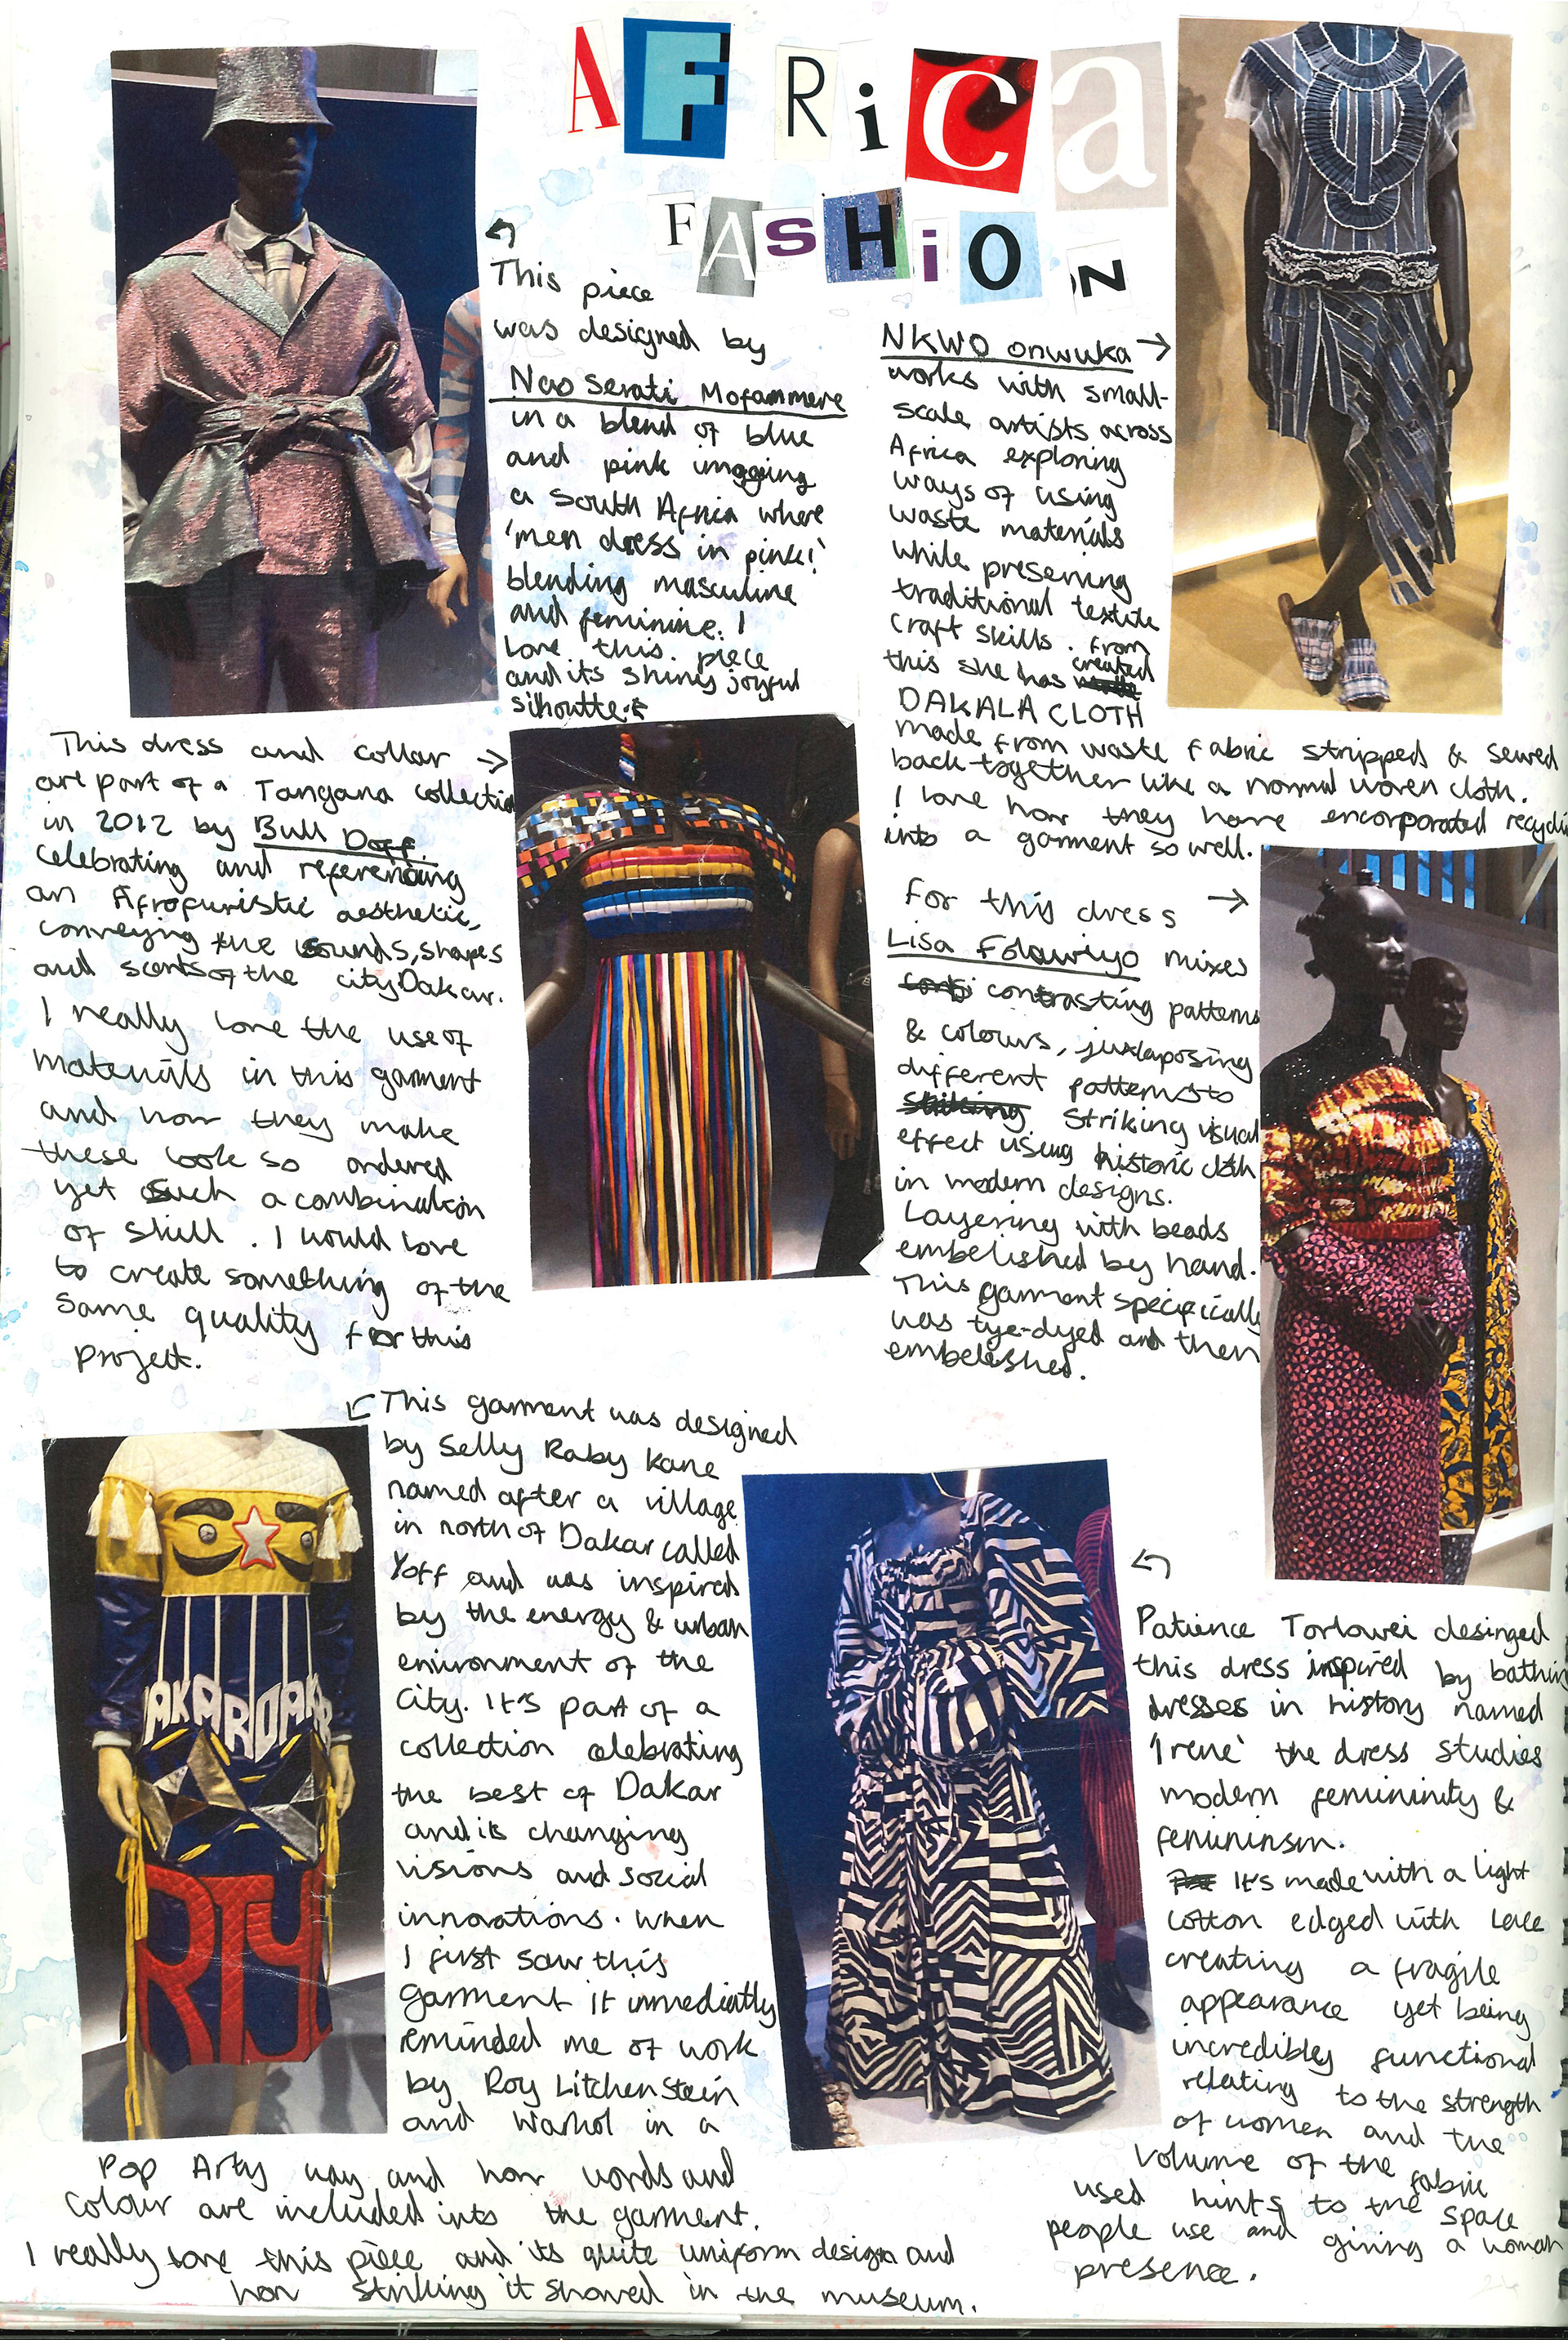 AFRiCa
FASHiON
This piece
was designed by
Nao Serati Mofammere
in a blend of blue
and pink imagging
a South Africa where
'men dress in pink!'
blending masculine
and feminine. I
love this piece
and its shiny joyful
silhoutte.
NKWO onwuka
works with small-
scale artists across
Africa exploring
ways of using
waste materials
while preserving
traditional textile
craft skills. From
this she has created
DAKALA CLOTH
made from waste fabric stripped & sewed
back together like a normal woven cloth.
I love how they have encorporated recycli
into a garment so well.
This dress and collar
are part of a Tangana collectio
in 2012 by Bull Doff.
Celebrating and referencing
an Afrofuristic aesthetic,
conveying the sounds, shapes
and scents of the city Dakar.
I really love the use of
materials in this garment
and how they make
these look so ordered
yet such a combination
of skill. I would love
to create something of the
same quality for this
project.
For this dress
Lisa Folawiyo mixes
contrasting patterns
& colours, juxtaposing
different patterns to
striking visual
effect using historic cloth
in modern designs.
Layering with beads
embelished by hand.
This garment specifically
was tye-dyed and then
embelished.
This garment was designed
by Selly Raby Kane
named after a village
in north of Dakar called
Yoff and was inspired
by the energy & urban
environment of the
city. It's part of a
collection celebrating
the best of Dakar
and its changing
visions and social
innovations. When
I first saw this
garment it immediatly
reminded me of work
by Roy Litchenstein
and Warhol in a
Pop Arty way and how words and
colour are included into the garment.
I really love this piece and its quite uniform design and
how striking it showed in the museum.
AKARDAKAR
RTY
Patience Torlowei desinged
this dress inspired by bathin
dresses in history named
'Irene' the dress studies
modern femininity &
femininsm.
It's made with a light
cotton edged with lace
creating a fragile
appearance yet being
incredibly functional
relating to the strength
of women and the
volume of the fabric
used hints to the space
people use and giving a woman
presence.